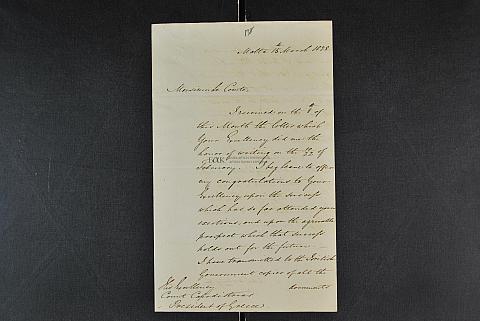 Malta 15 March 1828
Monsieur le Comte,
I received on the 8 of
this Month the letter which
Your Excellency did me the
honor of writing on the of
February. I beg leave to offer
my congratulations to Your
Excellency upon the success
which has so far attended your
exertions, and upon the agreeable
prospect which that success
holds out for the future. —
I have transmitted to the British
Government copies of all the
documents
His Excellency
Count Capodistrias
President of Greece